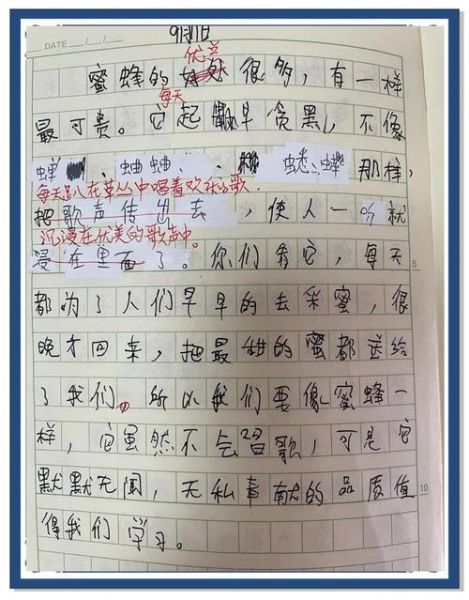 DATE / /
9月11日
优点
蜜蜂的好处很多，有一样
每天
最可贵。它起早贪黑，不像
蝉、蛐蛐、蟋蟀那样，
每天趴在草丛中唱着欢乐的歌，
把歌声传出去，使人一听就
沉浸在优美的歌声中。
浸在里面了。你们看它，每天
5
都为了人们早早的去采蜜，很
晚才回来，把最甜的蜜都送给
了我们。所以我们要像蜜蜂一
样，它虽然不会唱歌，可是它
默默无闻，无私奉献的品质值
10
得我们学习。